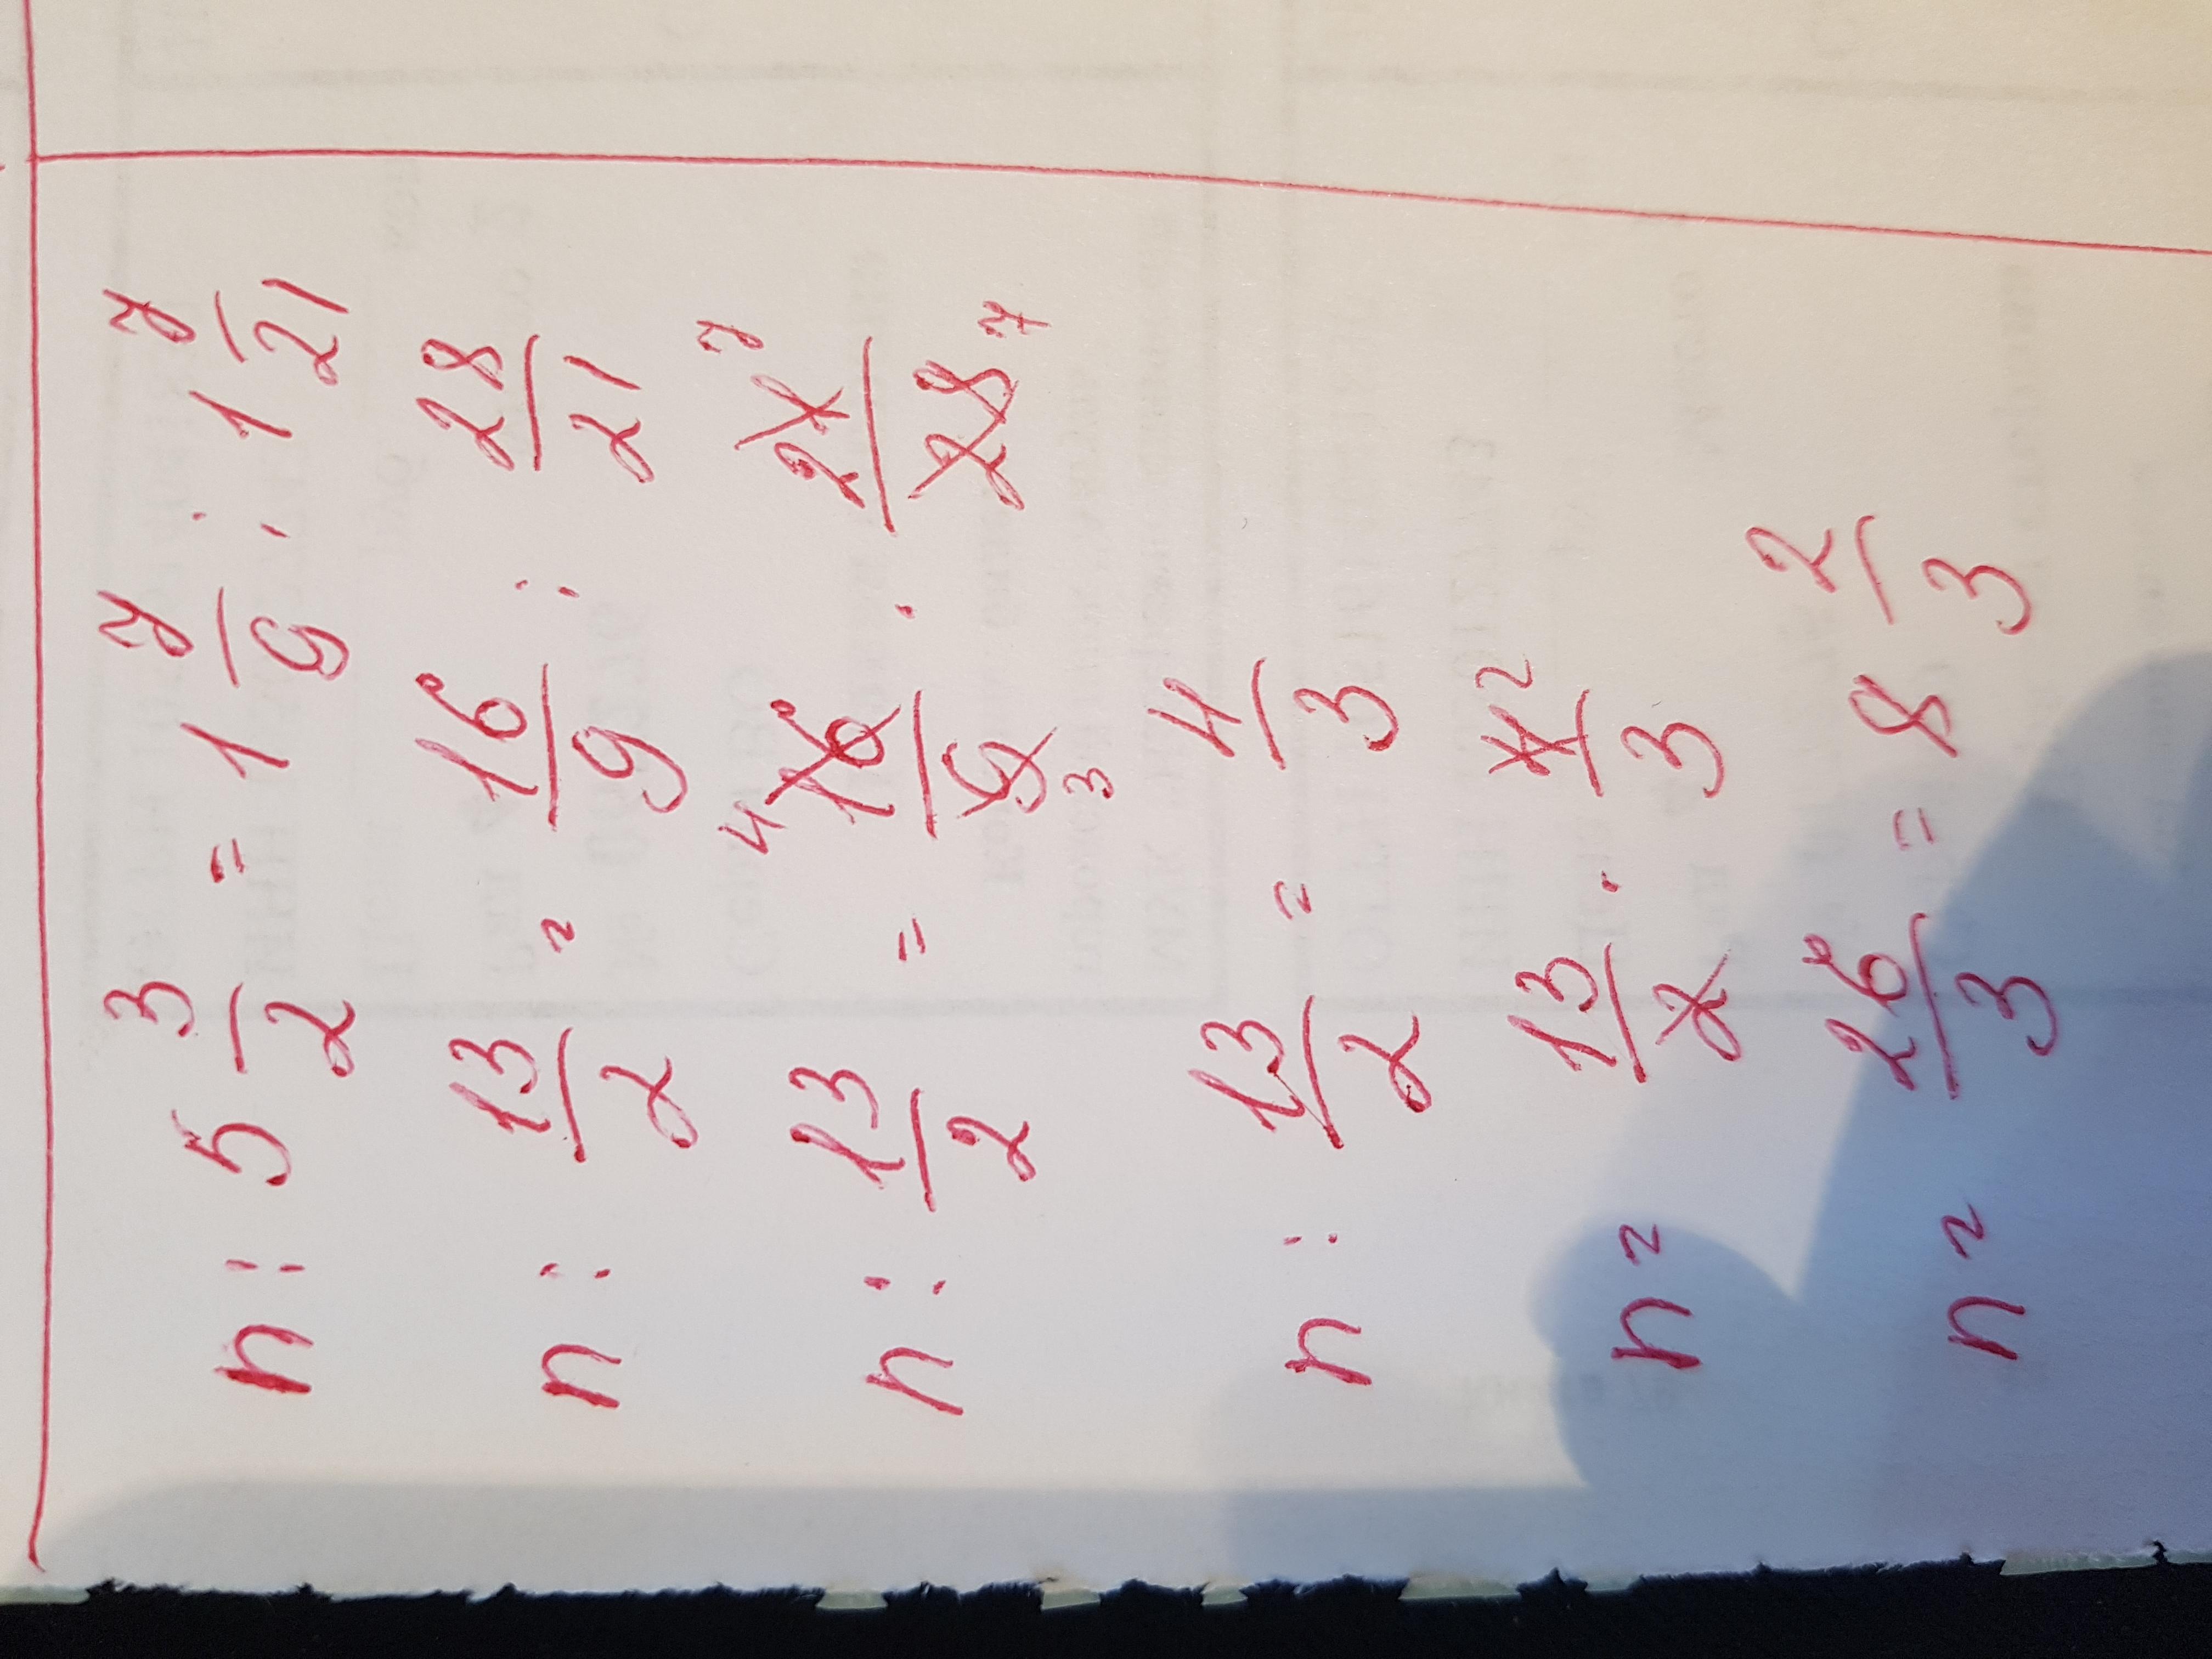 n : 5 3/2 = 1 7/9 : 1 7/21
n : 13/2 = 16/9 : 28/21
n : 13/2 = 4 16/9 3 · 21 7/28 7
n : 13/2 = 4/3
n = 13/2 · 4 2/3
n = 26/3 = 8 2/3